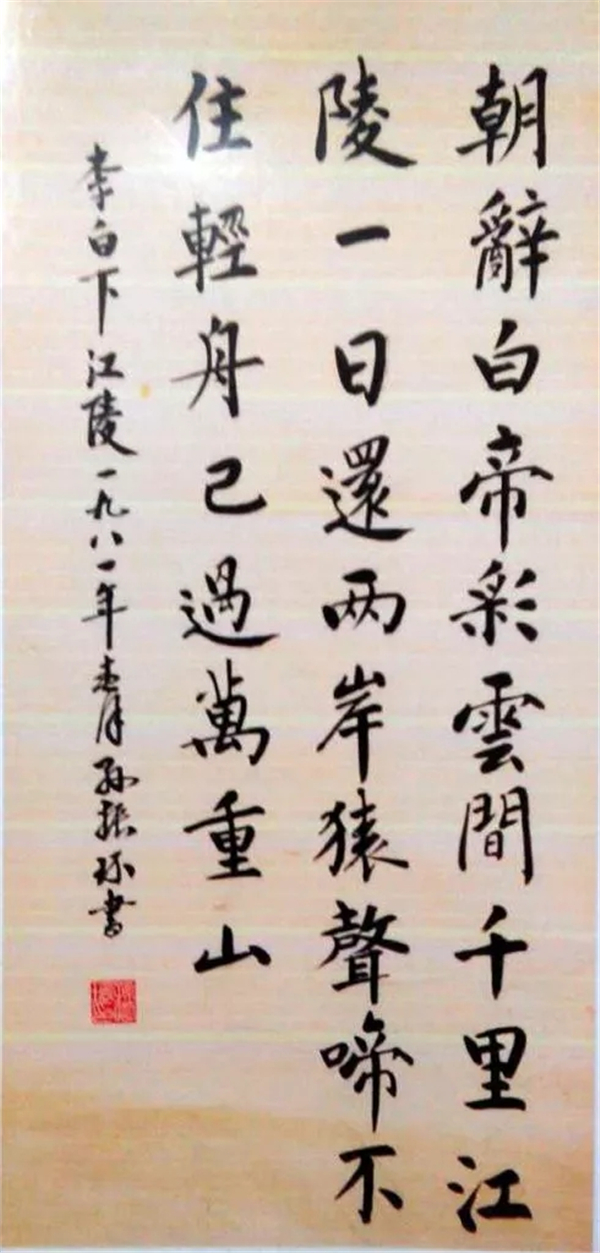 朝辭白帝彩雲間千里江
陵一日還两岸猿聲啼不
住輕舟已過萬重山
李白下江陵一九八一年春月孫振環書